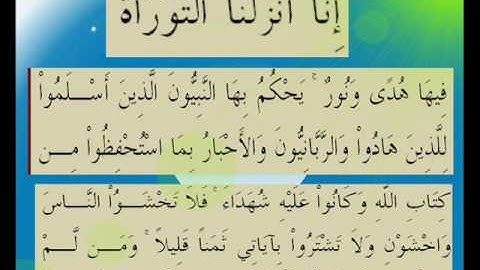 إِنَّا أَنزَلْنَا التَّوْرَاةَ
فِيهَا هُدًى وَنُورٌ ۚ يَحْكُمُ بِهَا النَّبِيُّونَ الَّذِينَ أَسْلَمُواْ
لِلَّذِينَ هَادُواْ وَالرَّبَّانِيُّونَ وَالأَحْبَارُ بِمَا اسْتُحْفِظُواْ مِن
كِتَابِ اللّهِ وَكَانُواْ عَلَيْهِ شُهَدَاءَ ۚ فَلاَ تَخْشَوُاْ النَّاسَ
وَاخْشَوْنِ وَلاَ تَشْتَرُواْ بِآيَاتِي ثَمَنًا قَلِيلاً ۚ وَمَن لَّمْ